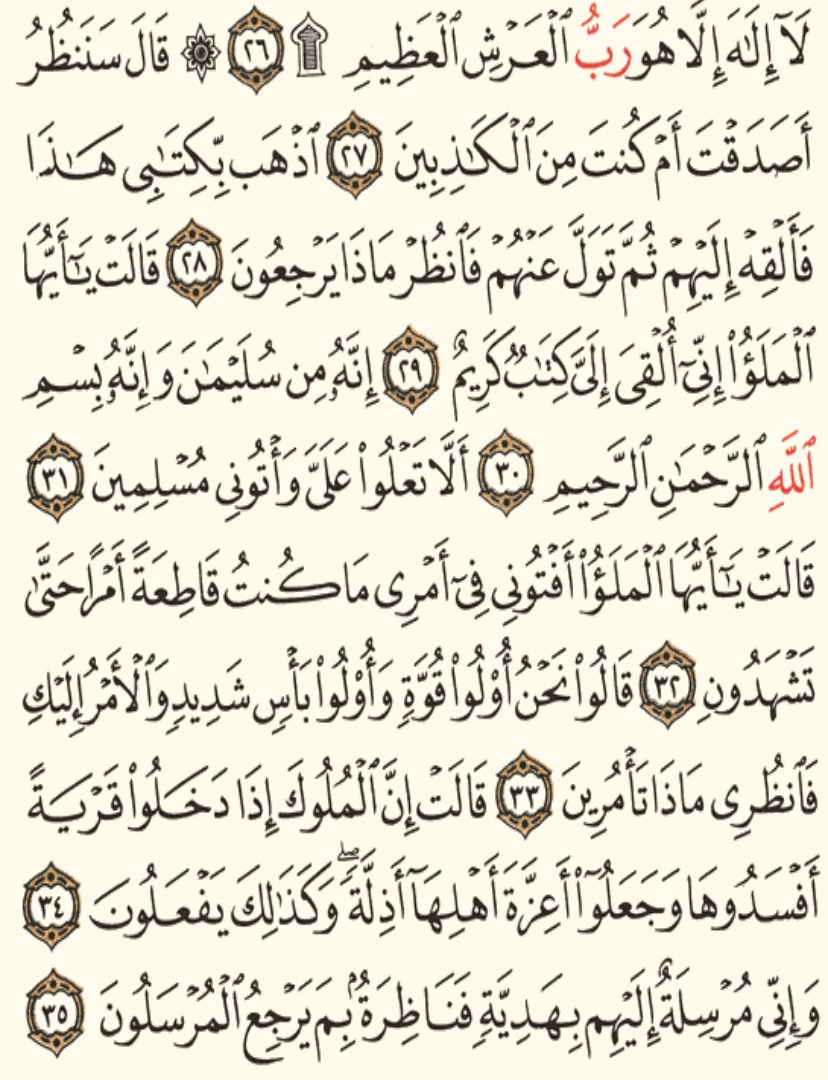 لَآ إِلَٰهَ إِلَّا هُوَ رَبُّ ٱلْعَرْشِ ٱلْعَظِيمِ ۩ ٢٦ ۞ قَالَ سَنَنظُرُ
أَصَدَقْتَ أَمْ كُنتَ مِنَ ٱلْكَٰذِبِينَ ٢٧ ٱذْهَب بِّكِتَٰبِى هَٰذَا
فَأَلْقِهْ إِلَيْهِمْ ثُمَّ تَوَلَّ عَنْهُمْ فَٱنظُرْ مَاذَا يَرْجِعُونَ ٢٨ قَالَتْ يَٰٓأَيُّهَا
ٱلْمَلَؤُا۟ إِنِّىٓ أُلْقِىَ إِلَىَّ كِتَٰبٌ كَرِيمٌ ٢٩ إِنَّهُۥ مِن سُلَيْمَٰنَ وَإِنَّهُۥ بِسْمِ
ٱللَّهِ ٱلرَّحْمَٰنِ ٱلرَّحِيمِ ٣٠ أَلَّا تَعْلُوا۟ عَلَىَّ وَأْتُونِى مُسْلِمِينَ ٣١
قَالَتْ يَٰٓأَيُّهَا ٱلْمَلَؤُا۟ أَفْتُونِى فِىٓ أَمْرِى مَا كُنتُ قَاطِعَةً أَمْرًا حَتَّىٰ
تَشْهَدُونِ ٣٢ قَالُوا۟ نَحْنُ أُو۟لُوا۟ قُوَّةٍ وَأُو۟لُوا۟ بَأْسٍ شَدِيدٍ وَٱلْأَمْرُ إِلَيْكِ
فَٱنظُرِى مَاذَا تَأْمُرِينَ ٣٣ قَالَتْ إِنَّ ٱلْمُلُوكَ إِذَا دَخَلُوا۟ قَرْيَةً
أَفْسَدُوهَا وَجَعَلُوٓا۟ أَعِزَّةَ أَهْلِهَآ أَذِلَّةً ۖ وَكَذَٰلِكَ يَفْعَلُونَ ٣٤
وَإِنِّى مُرْسِلَةٌ إِلَيْهِم بِهَدِيَّةٍ فَنَاظِرَةٌۢ بِمَ يَرْجِعُ ٱلْمُرْسَلُونَ ٣٥